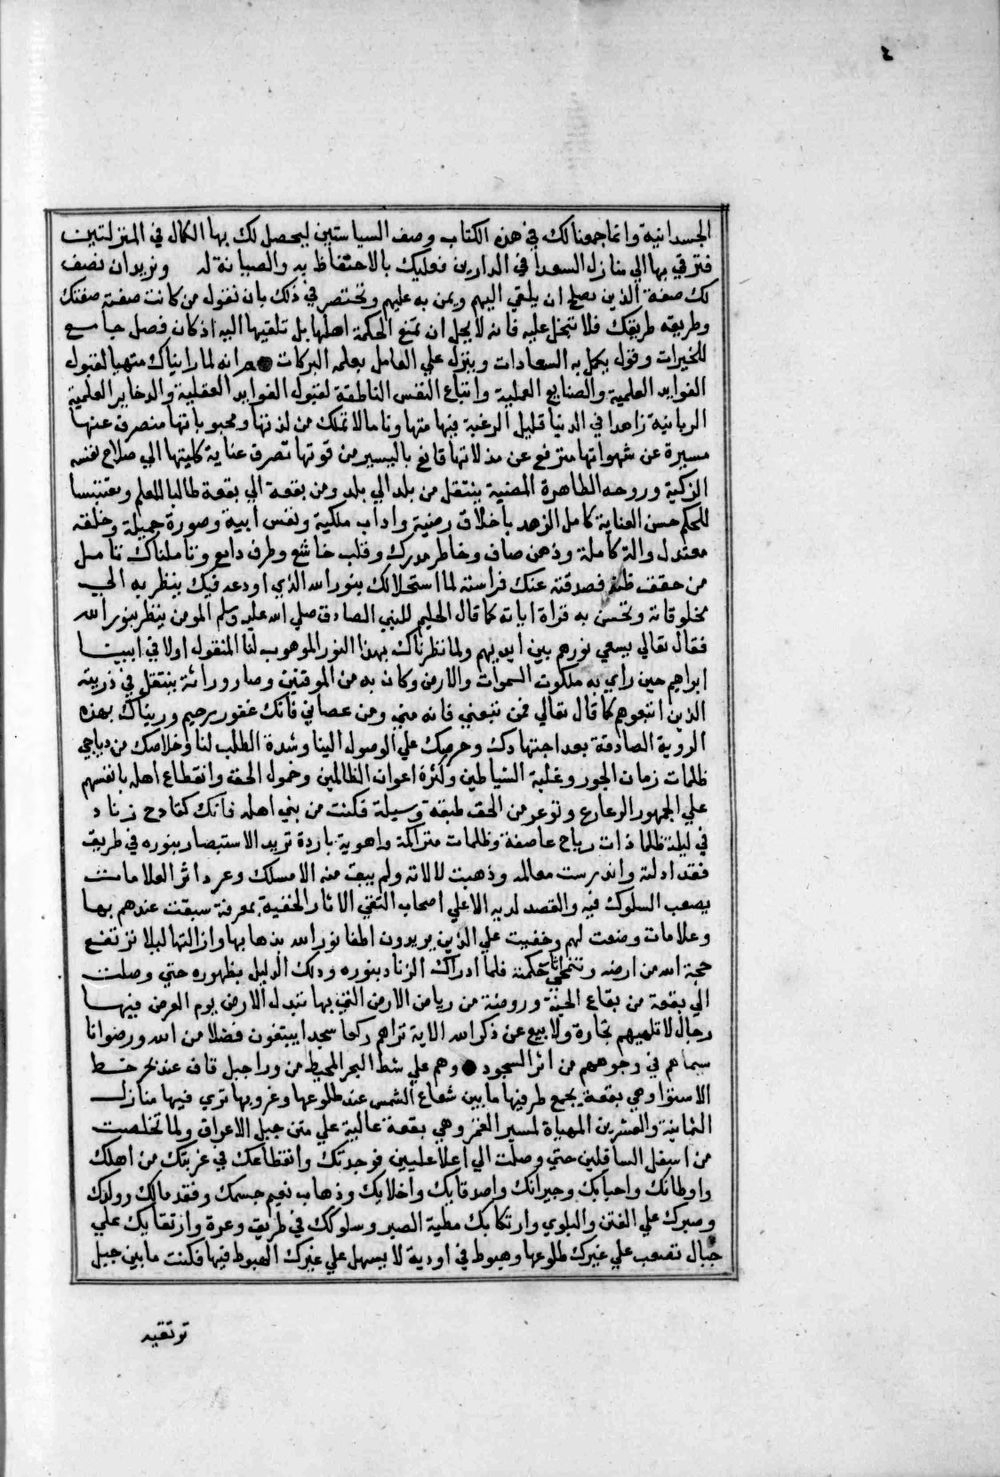 ٤
الجسدانية وانما جمعنا لك في هذه الكتاب وصف السياستين ليحصل لك بها الكمال في المنزلتين
فترقي بها الي منازل السعدا في الدارين فعليك بالاحتفاظ به والصيانة له ونريد ان نصف
لك صفة الذين يصلح ان يلقي اليهم ويمن به عليهم ونختصر في ذلك بان نقول من كانت صفته صفتك
وطريقه طريقك فلا تبخل عليه فانه لا يحل ان تمنع الحكمة اهلها بل تلقيها اليه اذ كان فصل جامع
للخيرات وقول يكمل به السعادات وينزل علي العامل بعلمه البركات ● انه لما رايناك متهيا لقبول
الفوايد العلمية والصنايع العملية واتباع النفس الناطقة لقبول الفوايد العقلية والدخاير العلمية
الربانية زاهدا في الدنيا قليل الرغبة فيها متهاونا مالا تملك من لذتها ومحبوباتها منصرف عنها
مسيرة عن شهواتها مترفع عن مذلاتها قانع باليسير من قوتها تصرف عناية كليتها الي صلاح نفسه
الزكية وروحه الطاهرة المضية ينتقل من بلد الي بلد ومن بقعة الي بقعة طالبا للعلم ومقتبسا
للحكم حسن العناية كامل الزهد باخلاق رضية واداب ملكية ونفس ابية وصورة جميلة وخلقه
معتدل والة كاملة وذهن صاف وخاطر مدرك وقلب خاشع وطرف دامع وتاملناك تامل
من حقق ظنه فصدقته عنك فراسته لما استحلالك بنور الله الذي اودعه فيك ينظر به الي
مخلوقاته وتحسن به قراة اياته كما قال الحليم للنبي الصادق صلي الله عليه وسلم المومن ينظر بنور الله
فقال تعالي يسعي نورهم بين ايديهم ولما نظرناك بهذا النور الموهوب لنا المنقول اولا في ابينا
ابراهيم حين راي به ملكوت السموات والارض وكان به من الموقنين وصار وراثة ينتقل في ذريته
الذين اتبعوهم كما قال تعالي فمن تبعني فانه مني ومن عصاني فانك غفور رحيم ورينا​ك بهذه
الروية الصادقة بعد اجتهادك وحرصك علي الوصول الينا وشدة الطلب لنا وخلاصك من دياجي
ظلمات زمان الجور وغلبة الشياطين وكثرة اعوان الظالمين وخمول الحق وانقطاع اهله بانفسهم
علي الجمهور الرعارع وتوعر من الحق طبقة وسيلة فكنت من بني اهله فانك كقادح زناد
في ليلة ظلما ذات رياح عاصفة وظلمات متراكمة واهوية باردة تريد الاستبصار بنوره في طريق
فقد ادلته واندرست معالمه وذهبت لالاته ولم يبق منه الا مسلك وعر داثر العلامات
يصعب السلوك فيه والقصد لديه الا علي اصحاب التقي الاثار الخفية بمعرفة سبقت عندهم بها
وعلامات وضعت لهم وخفيت علي الذين يريدون اطفا نور الله بذهابها وازالتها ليلا ترتفع
حجة الله من ارضه وتنمحي اثار حكمته فلما ادراك الزناد بنوره ودلك الدليل بظهوره حتي وصلت
الي بقعة من بقاع الجنة وروضة من رياض الارض التي بها تبدل الارض يوم العرض فيها
رجال لا تلهيهم تجارة ولا بيع عن ذكر الله الاية تراهم ركعا سجدا يبتغون فضلا من الله ورضوانا
سيماهم في وجوههم من اثر السجود ● وهم علي شط البحر المحيط من ورا جبل قاف عند نحر خط
الاستوا وهي بقعة يجمع طرفيها ما بين شعاع الشمس عند طلوعها وغروبها تري فيها منازل
الثمانية والعشرين المهياة لمسير القمر وهي بقعة عالية علي متن جبل الاعراف ولما تخلصت
من اسفل السافلين حتي وصلت الي اعلا عليين فوجدتك وانقطاعك في غربتك من اهلك
واوطانك واحبابك وجيرانك واصدقايك واخلايك وذهاب نعيم جسمك وفقد مالك وولدك
وصبرك علي الفتن والبلوي وارتكابك مطية الصبر وسلوكك في طريق وعرة وارتقايك علي
جبال تصعب علي غيرك طلوعها وهبوط في اودية لا يسهل علي غيرك الهبوط فيها فكنت ما بين جبل
توتقيه